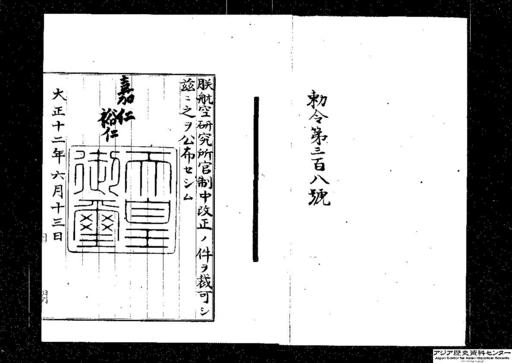 勅令第三百八號
朕航空研究所官制中改正ノ件ヲ裁可シ
玆ニ之ヲ公布セシム
嘉仁
裕仁
天皇
御璽
大正十二年六月十三日
アジア歴史資料センター
Japan Center for Asian Historical Records